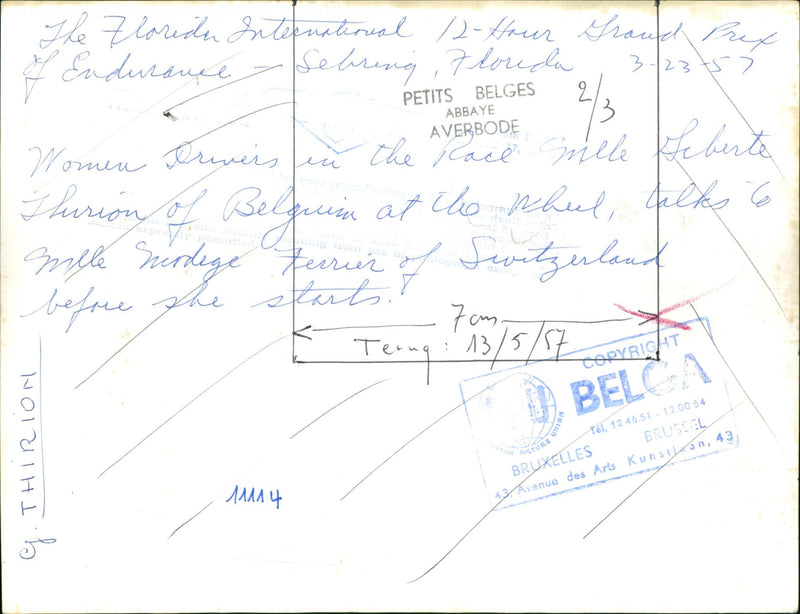 The Florida International 12-Hour Grand Prix
of Endurance - Sebring, Florida 3-23-57
PETITS BELGES
ABBAYE
AVERBODE
2/3
Women Drivers in the Race Mlle Giberte
Thurion of Belguim at the Wheel, talks to
Mlle Modege Ferrier of Switzerland
before she starts.
7cm
Terug: 13/5/57
COPYRIGHT
BELGA
Tél. 12.46.51 - 12.00.54
BRUXELLES BRUSSEL
43, Avenue des Arts Kunstlaan, 43
PICTURE UNION
G. THIRION
11114